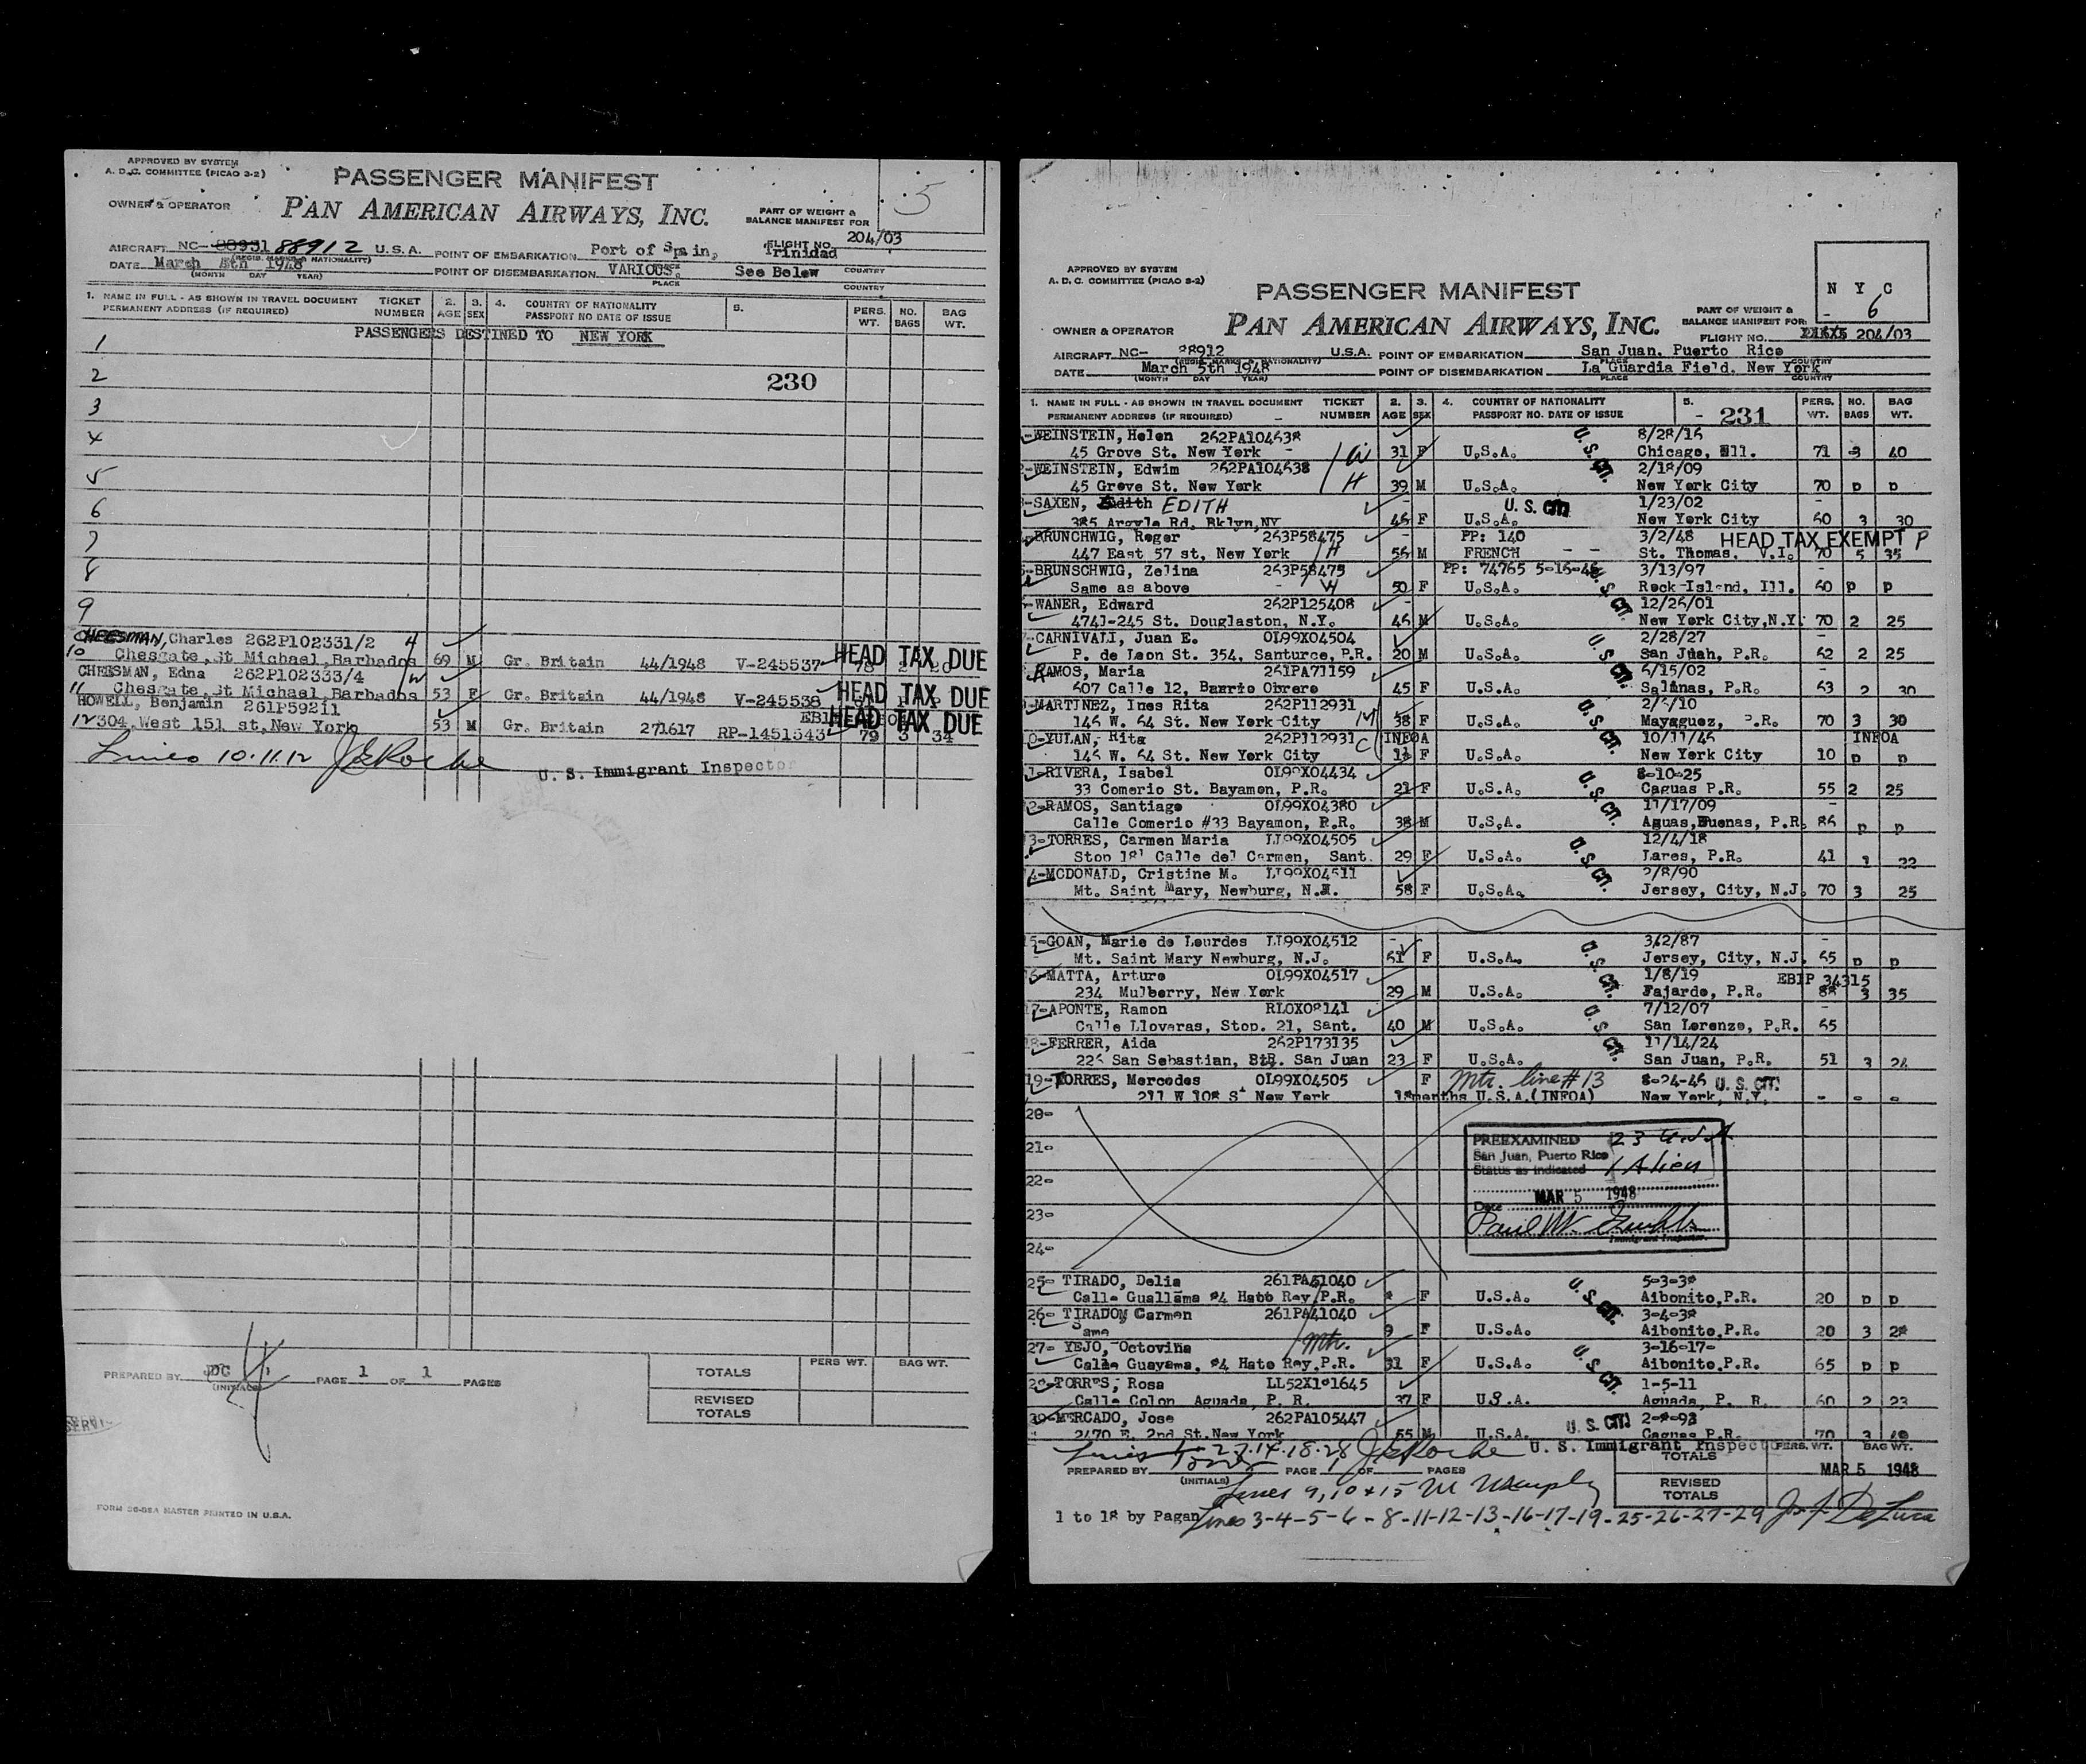 APPROVED BY SYSTEM
A. D. C. COMMITTEE (PICAO 3-2)
PASSENGER MANIFEST
5
OWNER & OPERATOR
PAN AMERICAN AIRWAYS, INC.
PART OF WEIGHT &
BALANCE MANIFEST FOR
FLIGHT NO. 204/03
AIRCRAFT NC- 88931 88912 U.S.A. POINT OF EMBARKATION Port of Spain, Trinidad
(REGIS. MARKS & NATIONALITY)
DATE March 5th 1948 POINT OF DISEMBARKATION VARIOUS. See Below COUNTRY
(MONTH DAY YEAR) PLACE COUNTRY
1. NAME IN FULL - AS SHOWN IN TRAVEL DOCUMENT TICKET 2. 3. 4. COUNTRY OF NATIONALITY 5. PERS. NO. BAG
PERMANENT ADDRESS (IF REQUIRED) NUMBER AGE SEX PASSPORT NO DATE OF ISSUE WT. BAGS WT.
PASSENGERS DESTINED TO NEW YORK
1
2 230
3
4
5
6
7
8
9
CHEESMAN, Charles 262P102331/2 H
10 Chesgate, St Michael, Barbados 69 M Gr. Britain 44/1948 V-245537 78 2 20 HEAD TAX DUE
CHEESMAN, Edna 262P102333/4 W
11 Chesgate, St Michael, Barbados 53 F Gr. Britain 44/1948 V-245538 HEAD TAX DUE
HOWELL, Benjamin 261P59211 HEAD TAX DUE
12 304 West 151 st, New York 53 M Gr. Britain 271617 RP-1451543 79 3 34
Lines 10.11.12 J E Roche U. S. Immigrant Inspector
PREPARED BY JDC PAGE 1 OF 1 PAGES
(INITIALS)
TOTALS PERS WT. BAG WT.
REVISED
TOTALS
FORM 36-52A MASTER PRINTED IN U.S.A.
N Y C
6
APPROVED BY SYSTEM
A. D. C. COMMITTEE (PICAO 3-2)
PASSENGER MANIFEST
OWNER & OPERATOR
PAN AMERICAN AIRWAYS, INC.
PART OF WEIGHT &
BALANCE MANIFEST FOR:
FLIGHT NO. 204/03
AIRCRAFT NC- 88912 U.S.A. POINT OF EMBARKATION San Juan, Puerto Rico
(REGIS. MARKS & NATIONALITY) PLACE COUNTRY
DATE March 5th 1948 POINT OF DISEMBARKATION La Guardia Field, New York
(MONTH DAY YEAR) PLACE COUNTRY
1. NAME IN FULL - AS SHOWN IN TRAVEL DOCUMENT TICKET 2. 3. 4. COUNTRY OF NATIONALITY 5. PERS. NO. BAG
PERMANENT ADDRESS (IF REQUIRED) NUMBER AGE SEX PASSPORT NO. DATE OF ISSUE 231 WT. BAGS WT.
WEINSTEIN, Helen 262PA104638 8/28/16
45 Grove St. New York W 31 F U.S.A. U.S. CIT. Chicago, Ill. 71 3 40
WEINSTEIN, Edwim 262PA104638 2/18/09
45 Grove St. New York H 39 M U.S.A. New York City 70 p p
SAXEN, Edith EDITH U. S. CIT. 1/23/02
385 Argyle Rd, Bklyn, NY 46 F U.S.A. New York City 60 3 30
BRUNCHWIG, Roger 263P58475 PP: 140 3/2/48 HEAD TAX EXEMPT P
447 East 57 st, New York H 56 M FRENCH St. Thomas, V.I. 70 5 35
BRUNSCHWIG, Zelina 263P58475 PP: 74765 5-16-46 3/13/97
Same as above W 50 F U.S.A. U.S. CIT. Rock Island, Ill. 60 p p
WANER, Edward 262P125408 12/26/01
4741-245 St. Douglaston, N.Y. 46 M U.S.A. New York City, N.Y. 70 2 25
CARNIVALI, Juan E. OL99X04504 2/28/27
P. de Leon St. 354, Santurce, P.R. 20 M U.S.A. U.S. CIT. San Juan, P.R. 62 2 25
RAMOS, Maria 261PA71159 6/15/02
607 Calle 12, Barrio Obrero 45 F U.S.A. Salinas, P.R. 63 2 30
MARTINEZ, Ines Rita 262P112931 2/6/10
146 W. 64 St. New York City M 38 F U.S.A. U.S. CIT. Mayaguez, P.R. 70 3 30
YULAN, Rita 262P112931 C INFOA 10/11/46 INFOA
146 W. 64 St. New York City F U.S.A. New York City 10 p p
RIVERA, Isabel OL99X04434 8-10-25
33 Comerio St. Bayamon, P.R. F U.S.A. U.S. CIT. Caguas P.R. 55 2 25
12-RAMOS, Santiago OL99X04380 11/17/09
Calle Comerio #33 Bayamon, P.R. 38 M U.S.A. Aguas, Buenas, P.R. 86 p p
13-TORRES, Carmen Maria LL99X04505 12/4/18
Stop 18 Calle del Carmen, Sant. 29 F U.S.A. U.S. CIT. Lares, P.R. 41 1 22
14-MCDONALD, Cristine M. LL99X04511 2/8/90
Mt. Saint Mary, Newburg, N.J. 58 F U.S.A. Jersey, City, N.J. 70 3 25
15-GOAN, Marie de Lourdes LL99X04512 3/2/87
Mt. Saint Mary Newburg, N.J. 61 F U.S.A. U.S. CIT. Jersey, City, N.J. 65 p p
16-MATTA, Arturo OL99X04517 1/8/19 EBIP 34315
234 Mulberry, New York 29 M U.S.A. Fajardo, P.R. 3 35
17-APONTE, Ramon RLOX08141 7/12/07
Calle Lloveras, Stop. 21, Sant. 40 M U.S.A. U.S. CIT. San Lorenzo, P.R. 65
18-FERRER, Aida 262P173135 11/14/24
226 San Sebastian, San Juan 23 F U.S.A. San Juan, P.R. 51 3 24
19-TORRES, Mercedes OL99X04505 F Mtr. line #13 8-24-46 U.S. CIT.
211 W 108 St New York 18months U.S.A.(INFOA) New York, N.Y. - - -
20-
21-
22-
23-
24-
PREEXAMINED 23 U.S.A.
San Juan, Puerto Rico
Status as indicated 1 Alien
MAR 5 1948
Date
Paul W.
Immigrant Inspector
25- TIRADO, Delia 261PA41040 5-3-38
Calle Guallama #4 Hato Rey P.R. F U.S.A. U.S. CIT. Aibonito, P.R. 20 p p
26- TIRADO, Carmen 261PA41040 3-4-38
Same 9 F U.S.A. Aibonito, P.R. 20 3 28
27- YEJO, Octovina Mtr. 3-16-17-
Calle Guayama, #4 Hato Rey, P.R. 31 F U.S.A. U.S. CIT. Aibonito, P.R. 65 p p
28-TORRES, Rosa LL52X101645 1-5-11
Calle Colon Aguada, P. R. 37 F U.S.A. Aguada, P. R. 60 2 23
29-MERCADO, Jose 262PA105447 U.S. CIT.
2470 E. 2nd St. New York 55 M U.S.A. Caguas P.R. 70 3
Lines 1-2.7.14.18.28 J E Roche U. S. Immigrant Inspector
PREPARED BY PAGE 1 OF PAGES
(INITIALS)
TOTALS PERS. WT. BAG WT.
MAR 5 1948
REVISED
TOTALS
Lines 9, 10 + 15
1 to 18 by Pagan Lines 3-4-5-6-8-11-12-13-16-17-19-25-26-27-29 Jos. J. DeLuca